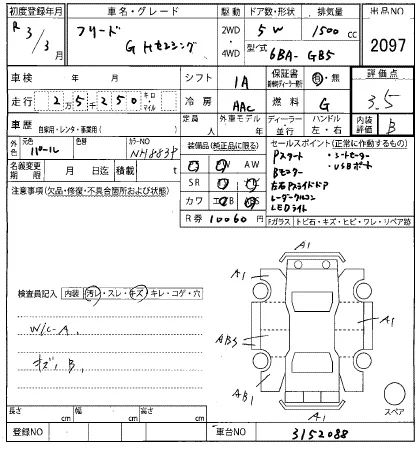 初度登録年月 車名・グレード 駆動 ドア数・形状 排気量 出品NO
R 3/3月 フリード 2WD 5W 1500cc 2097
G Hセンシング ・4WD 型式 6BA- GB5
車検 年 月 シフト IA 保証書 有・無 評価点
走行 2万5千250 キロ・マイル 冷房 AAC 燃料 G 3.5
車歴 自家用・レンタ・事業用( ) 定員 人 外車モデル 年 ディーラー・並行 ハンドル 左・右 内装評価 B
外色 元色 パール 色替 カラーNO NH883P 装備品(純正品に限る) セールスポイント(正常に作動するもの)
名義変更期限 月 日迄 積載 t AW Pスタート ・シートヒーター
注意事項(欠品・修復・不具合箇所および状態) SR Bモニター ・USBポート
カワ 左右Pスライドドア
R券 10060 円 レーダークルコン
LEDライト
Fガラス トビ石・キズ・ヒビ・ワレ・リペア跡
検査員記入 内装 汚レ・スレ・キズ・キレ・コゲ・穴
W/C-A
キズ、B、
A1
A1
A1
A1
AB3
AB1
A1
スペア
長さ cm 幅 cm 高さ cm
登録NO 車台NO 3152088